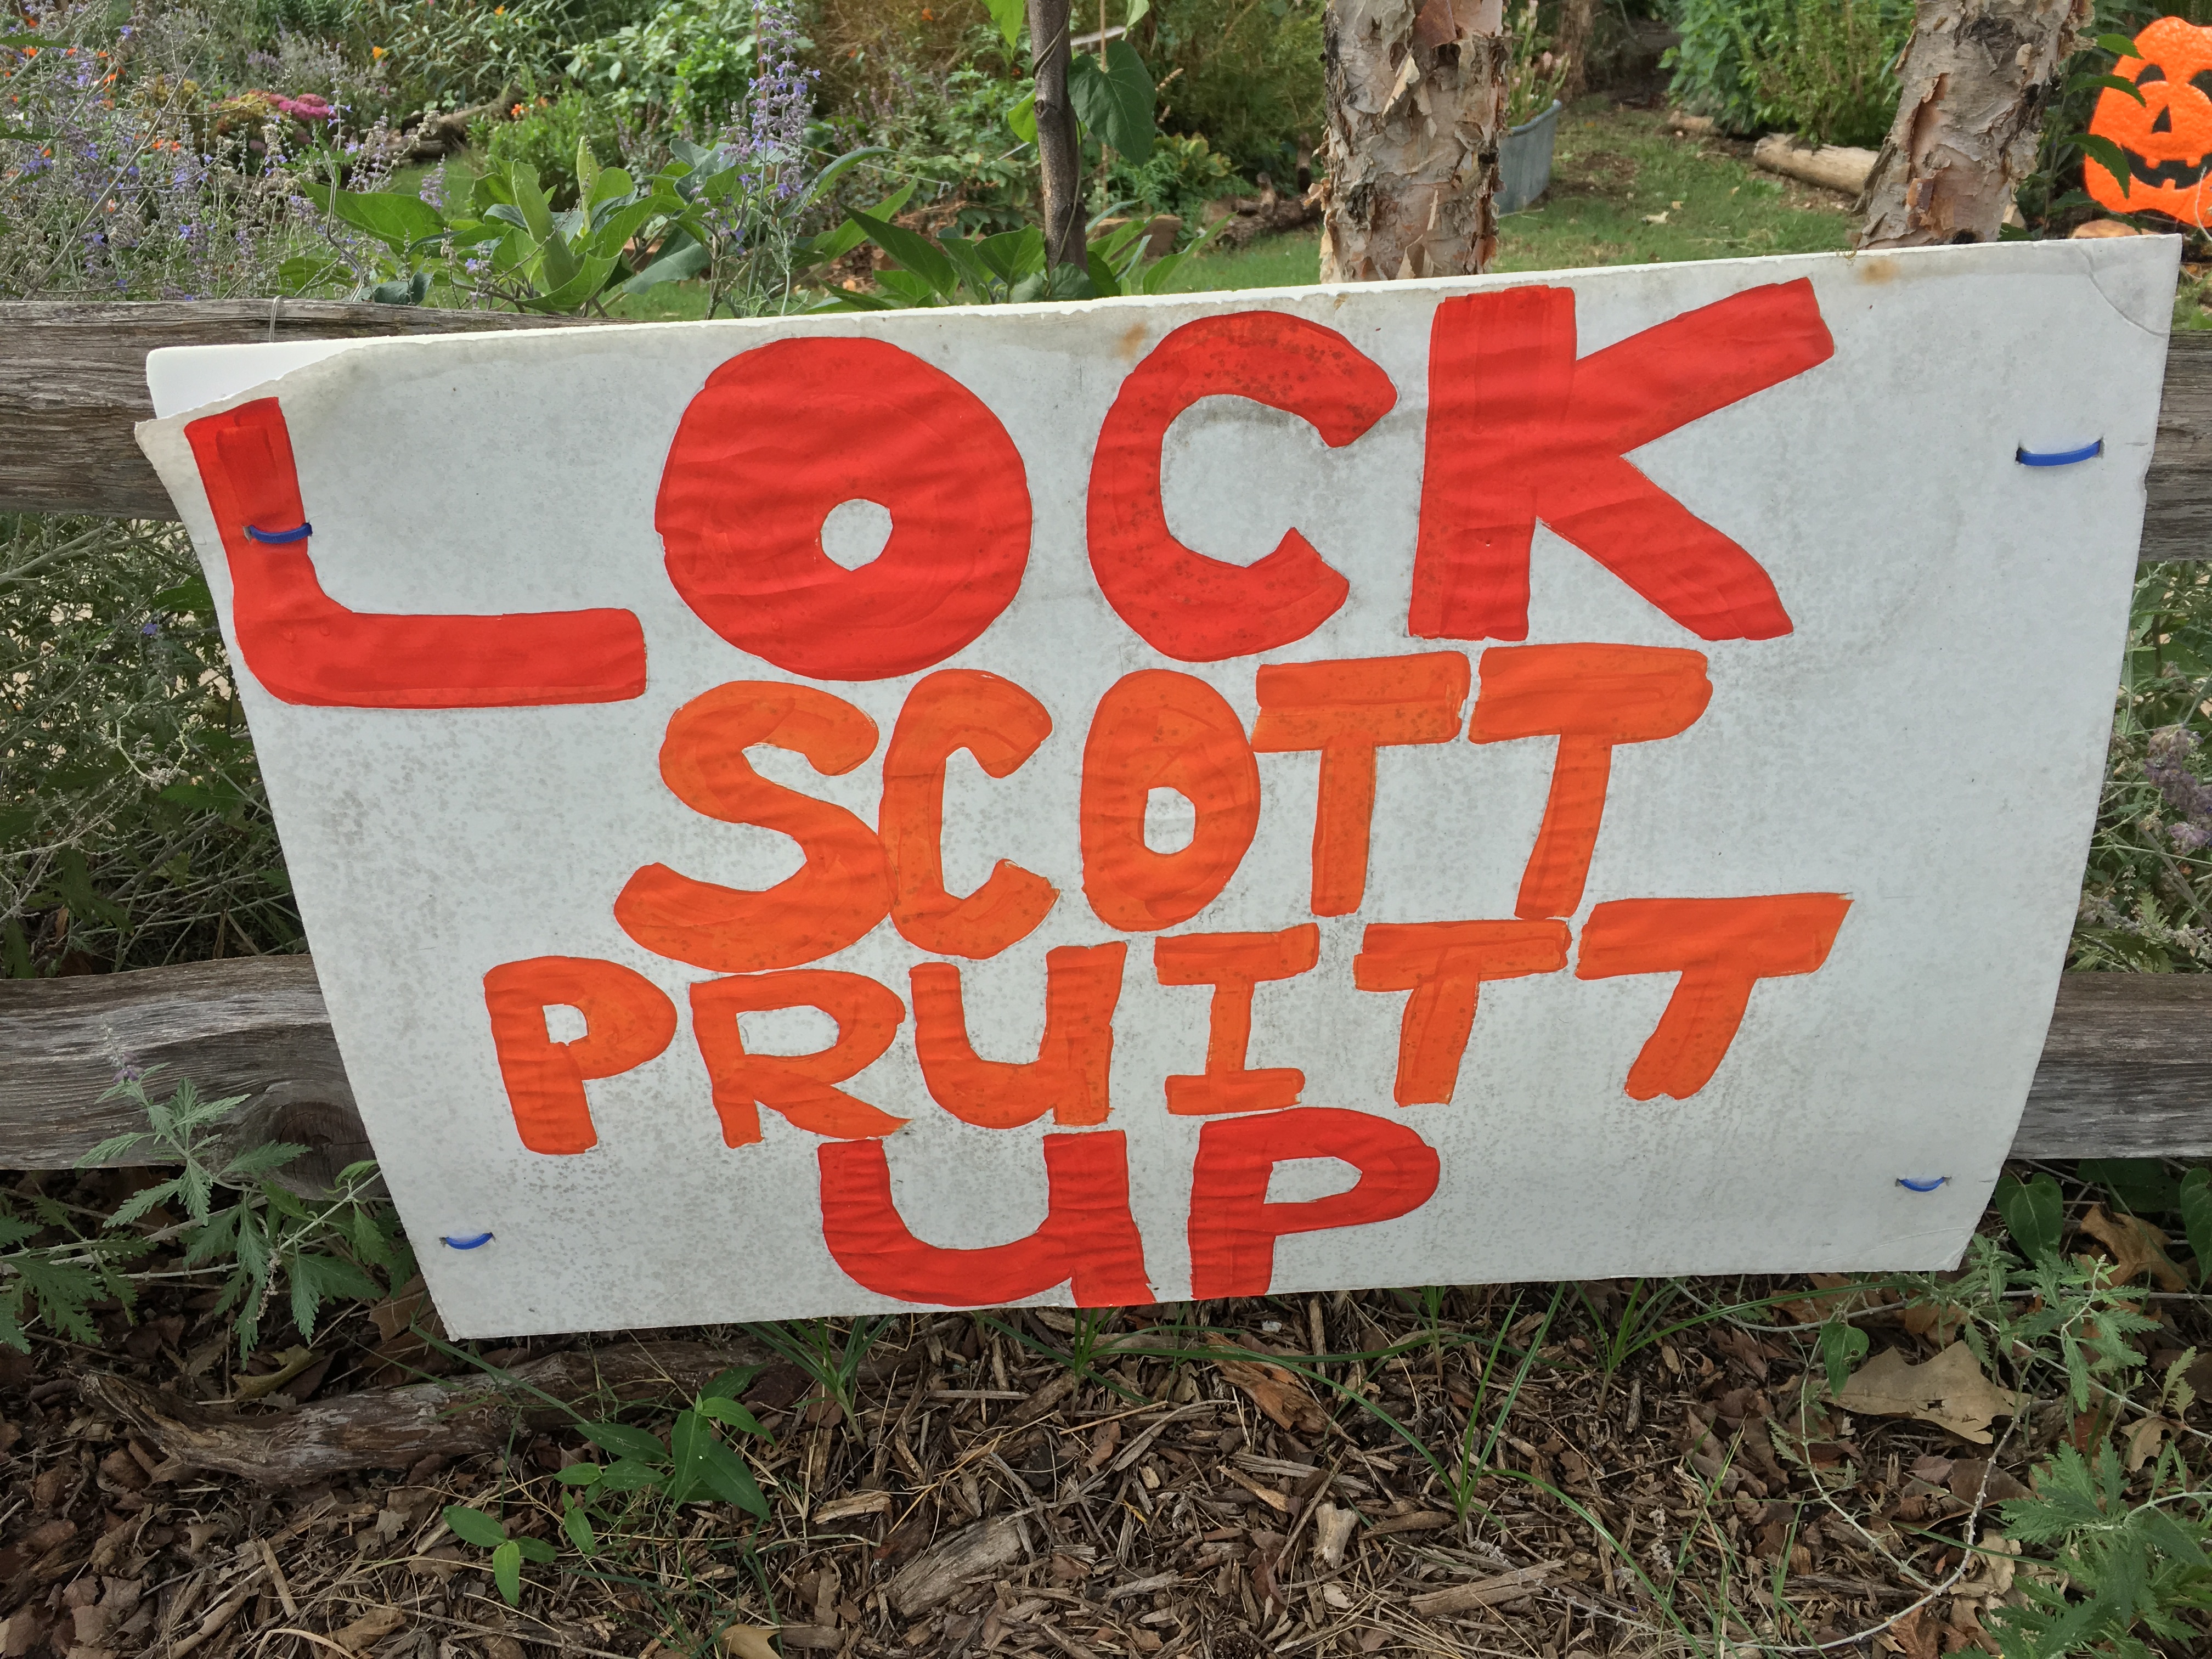 LOCK
SCOTT
PRUITT
UP